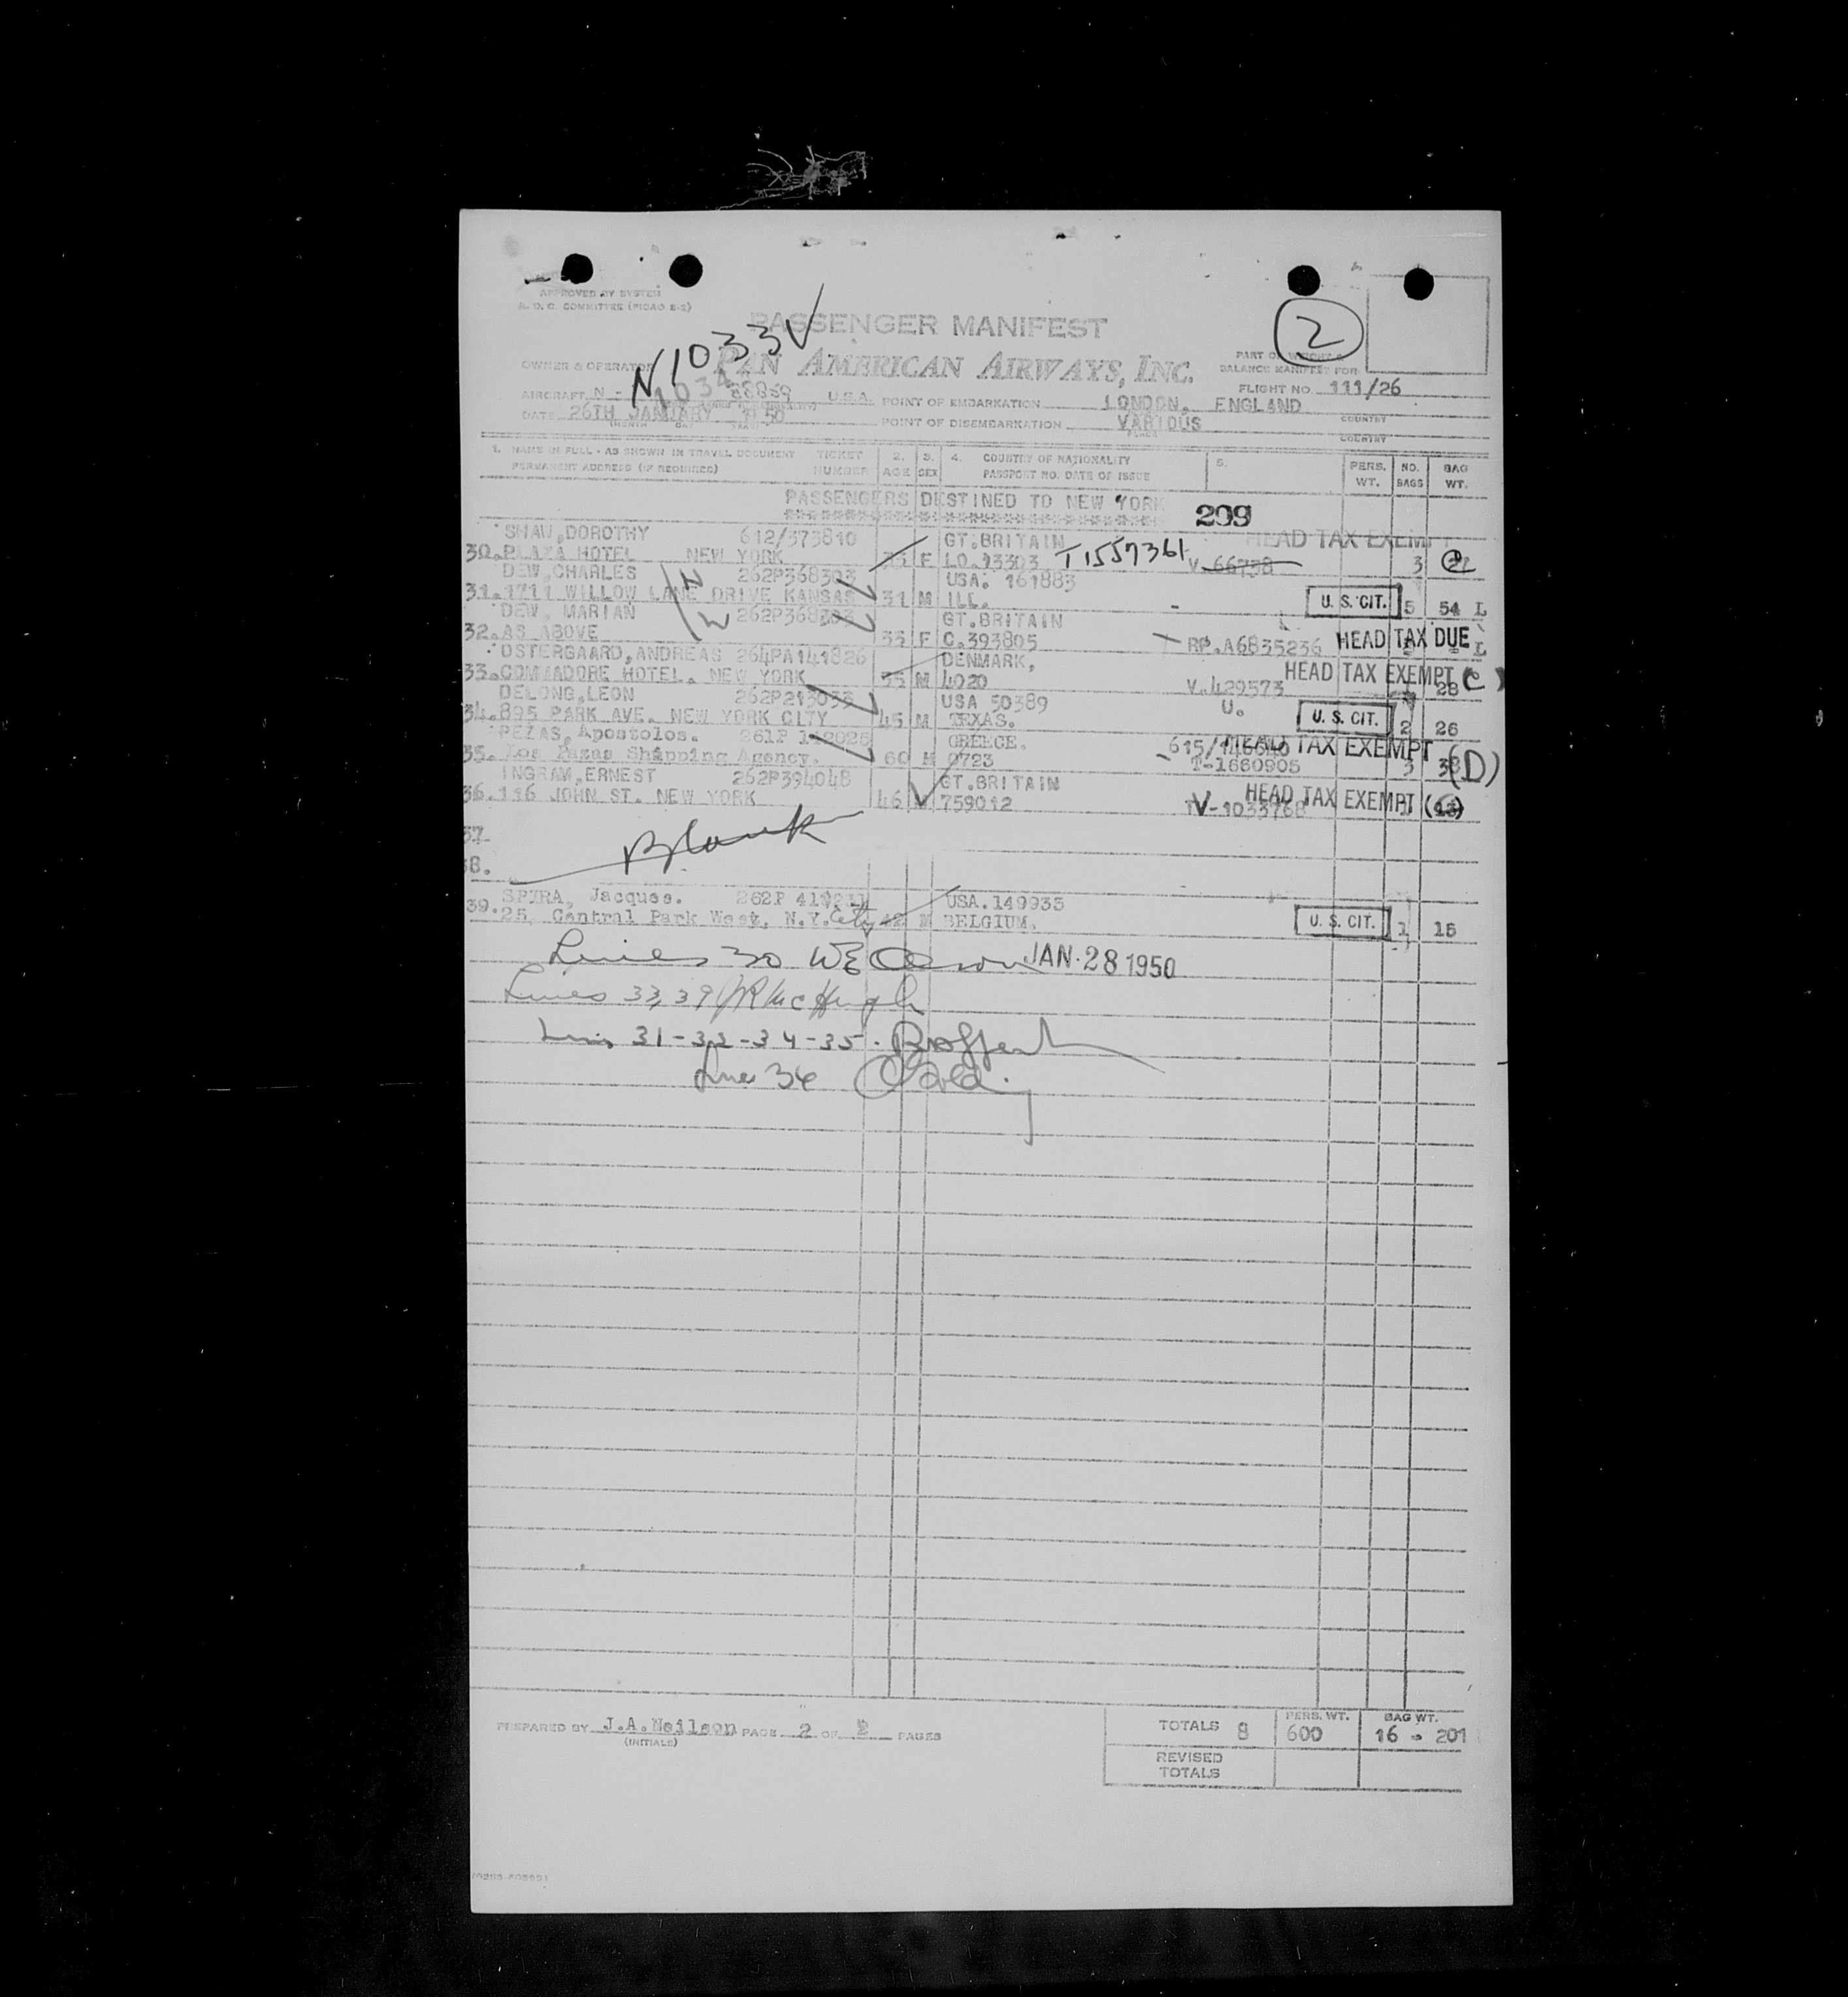 APPROVED BY SYSTEM
A. O. C. COMMITTEE (PICAO E-2)
2
PASSENGER MANIFEST
N1033V
OWNER & OPERATOR PAN AMERICAN AIRWAYS, INC.
PART OF WEIGHT & BALANCE MANIFEST FOR
FLIGHT NO. 111/26
AIRCRAFT N - 88859 U.S.A. POINT OF EMBARKATION LONDON, ENGLAND
COUNTRY
DATE 26TH JANUARY 1950 POINT OF DISEMBARKATION VARIOUS
(MONTH DAY YEAR) PLACE COUNTRY
1. NAME IN FULL - AS SHOWN IN TRAVEL DOCUMENT TICKET 2. 3. 4. COUNTRY OF NATIONALITY 5. PERS. NO. BAG
PERMANENT ADDRESS (IF REQUIRED) NUMBER AGE SEX PASSPORT NO. DATE OF ISSUE WT. BAGS WT.
PASSENGERS DESTINED TO NEW YORK
209
SHAW,DOROTHY 612/373810 GT.BRITAIN HEAD TAX EXEMPT
30.PLAZA HOTEL NEW YORK F LO.13303 T1557361 V.66738 3
DEW,CHARLES 262P368303 USA. 161883
31.1711 WILLOW LANE DRIVE KANSAS 31 M ILL. - U. S. CIT. 5 54 L
DEW, MARIAN 262P368303 GT.BRITAIN
32.AS ABOVE 33 F C.393805 RP.A6835236 HEAD TAX DUE L
OSTERGAARD,ANDREAS 264PA141826 DENMARK, HEAD TAX EXEMPT (C)
33.COMMADORE HOTEL. NEW YORK 35 M 4020 V.429573 28
DELONG,LEON 262P213033 USA 50389 U.
34.895 PARK AVE. NEW YORK CITY 45 M TEXAS. U. S. CIT. 2 26
PEZAS, Apostolos. 261P GREECE. HEAD TAX EXEMPT (D)
35.Los Pazas Shipping Agency. 60 M 0723 T-1660905 3
INGRAM,ERNEST 262P394048 GT.BRITAIN
36.116 JOHN ST. NEW YORK 46 M 759012 TV-1033768 HEAD TAX EXEMPT
37.
Blank
38.
SPIRA, Jacques. 262P USA.149935
39.25, Central Park West, N.Y.City 42 M BELGIUM. U. S. CIT. 1 15
Lines 30 JAN 28 1950
Lines 33, 39 McHugh
31-32-34-35.
Line 36
PREPARED BY J.A.Neilson PAGE 2 OF 2 PAGES
(INITIALS)
TOTALS 8 PERS. WT. 600 BAG WT. 16 - 201
REVISED TOTALS